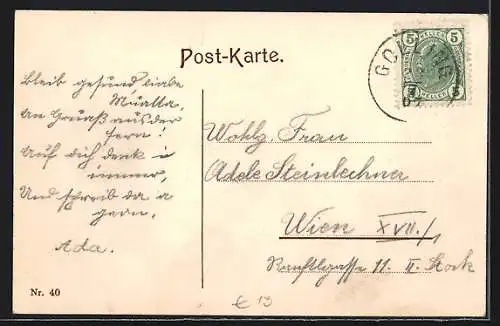 Post-Karte.
Bleib gesund, liabe
Muatta,
An Gruaß aus der
fern!
Auf dich denk i
immer,
Und schreib da a
gern.
Ada.
Nr. 40
Wohlg. Frau
Adele Steinlechner
Wien XVII./1
11. II. Stock
€ 13
5 HELLER 5
5 HELLER 5
GOL